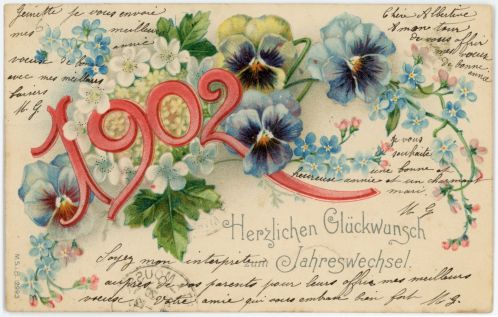 Ginette je vous envoie
mes meilleurs
année
voeux de bonne
avec mes meilleurs
baisers
M. G
Chère Albertine
A mon tour
de vous offrir
mes voeux
de bonne
année
1902
je vous
souhaite
une bonne et
heureuse année et un charmant
mari.
M. G
Herzlichen Glückwunsch
zum Jahreswechsel.
Soyez mon interprète
auprès de vos parents pour leurs offrir mes meilleurs
voeux Votre amie qui vous embrasse bien fort M. G